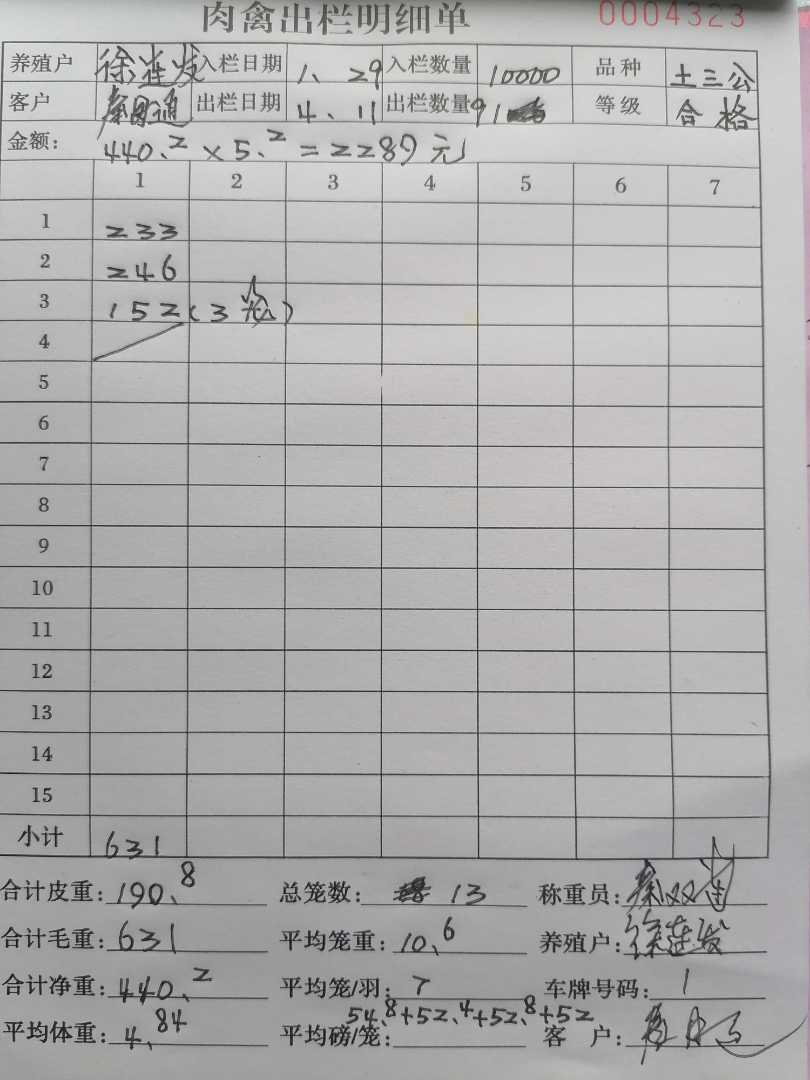 肉禽出栏明细单 0004323
养殖户 徐连发 入栏日期 1、29 入栏数量 10000 品种 土三公
客户 出栏日期 4、11 出栏数量 91 等级 合格
金额: 440.2 × 5.2 = 2289元
1 2 3 4 5 6 7
1 233
2 246
3 152(3笼)
4
5
6
7
8
9
10
11
12
13
14
15
小计 631
合计皮重: 190.8 总笼数: 13 称重员:
合计毛重: 631 平均笼重: 10.6 养殖户: 徐连发
合计净重: 440.2 平均笼/羽: 7 车牌号码: 1
54.8+52.4+52.8+52
平均体重: 4.84 平均磅/笼: 客 户: